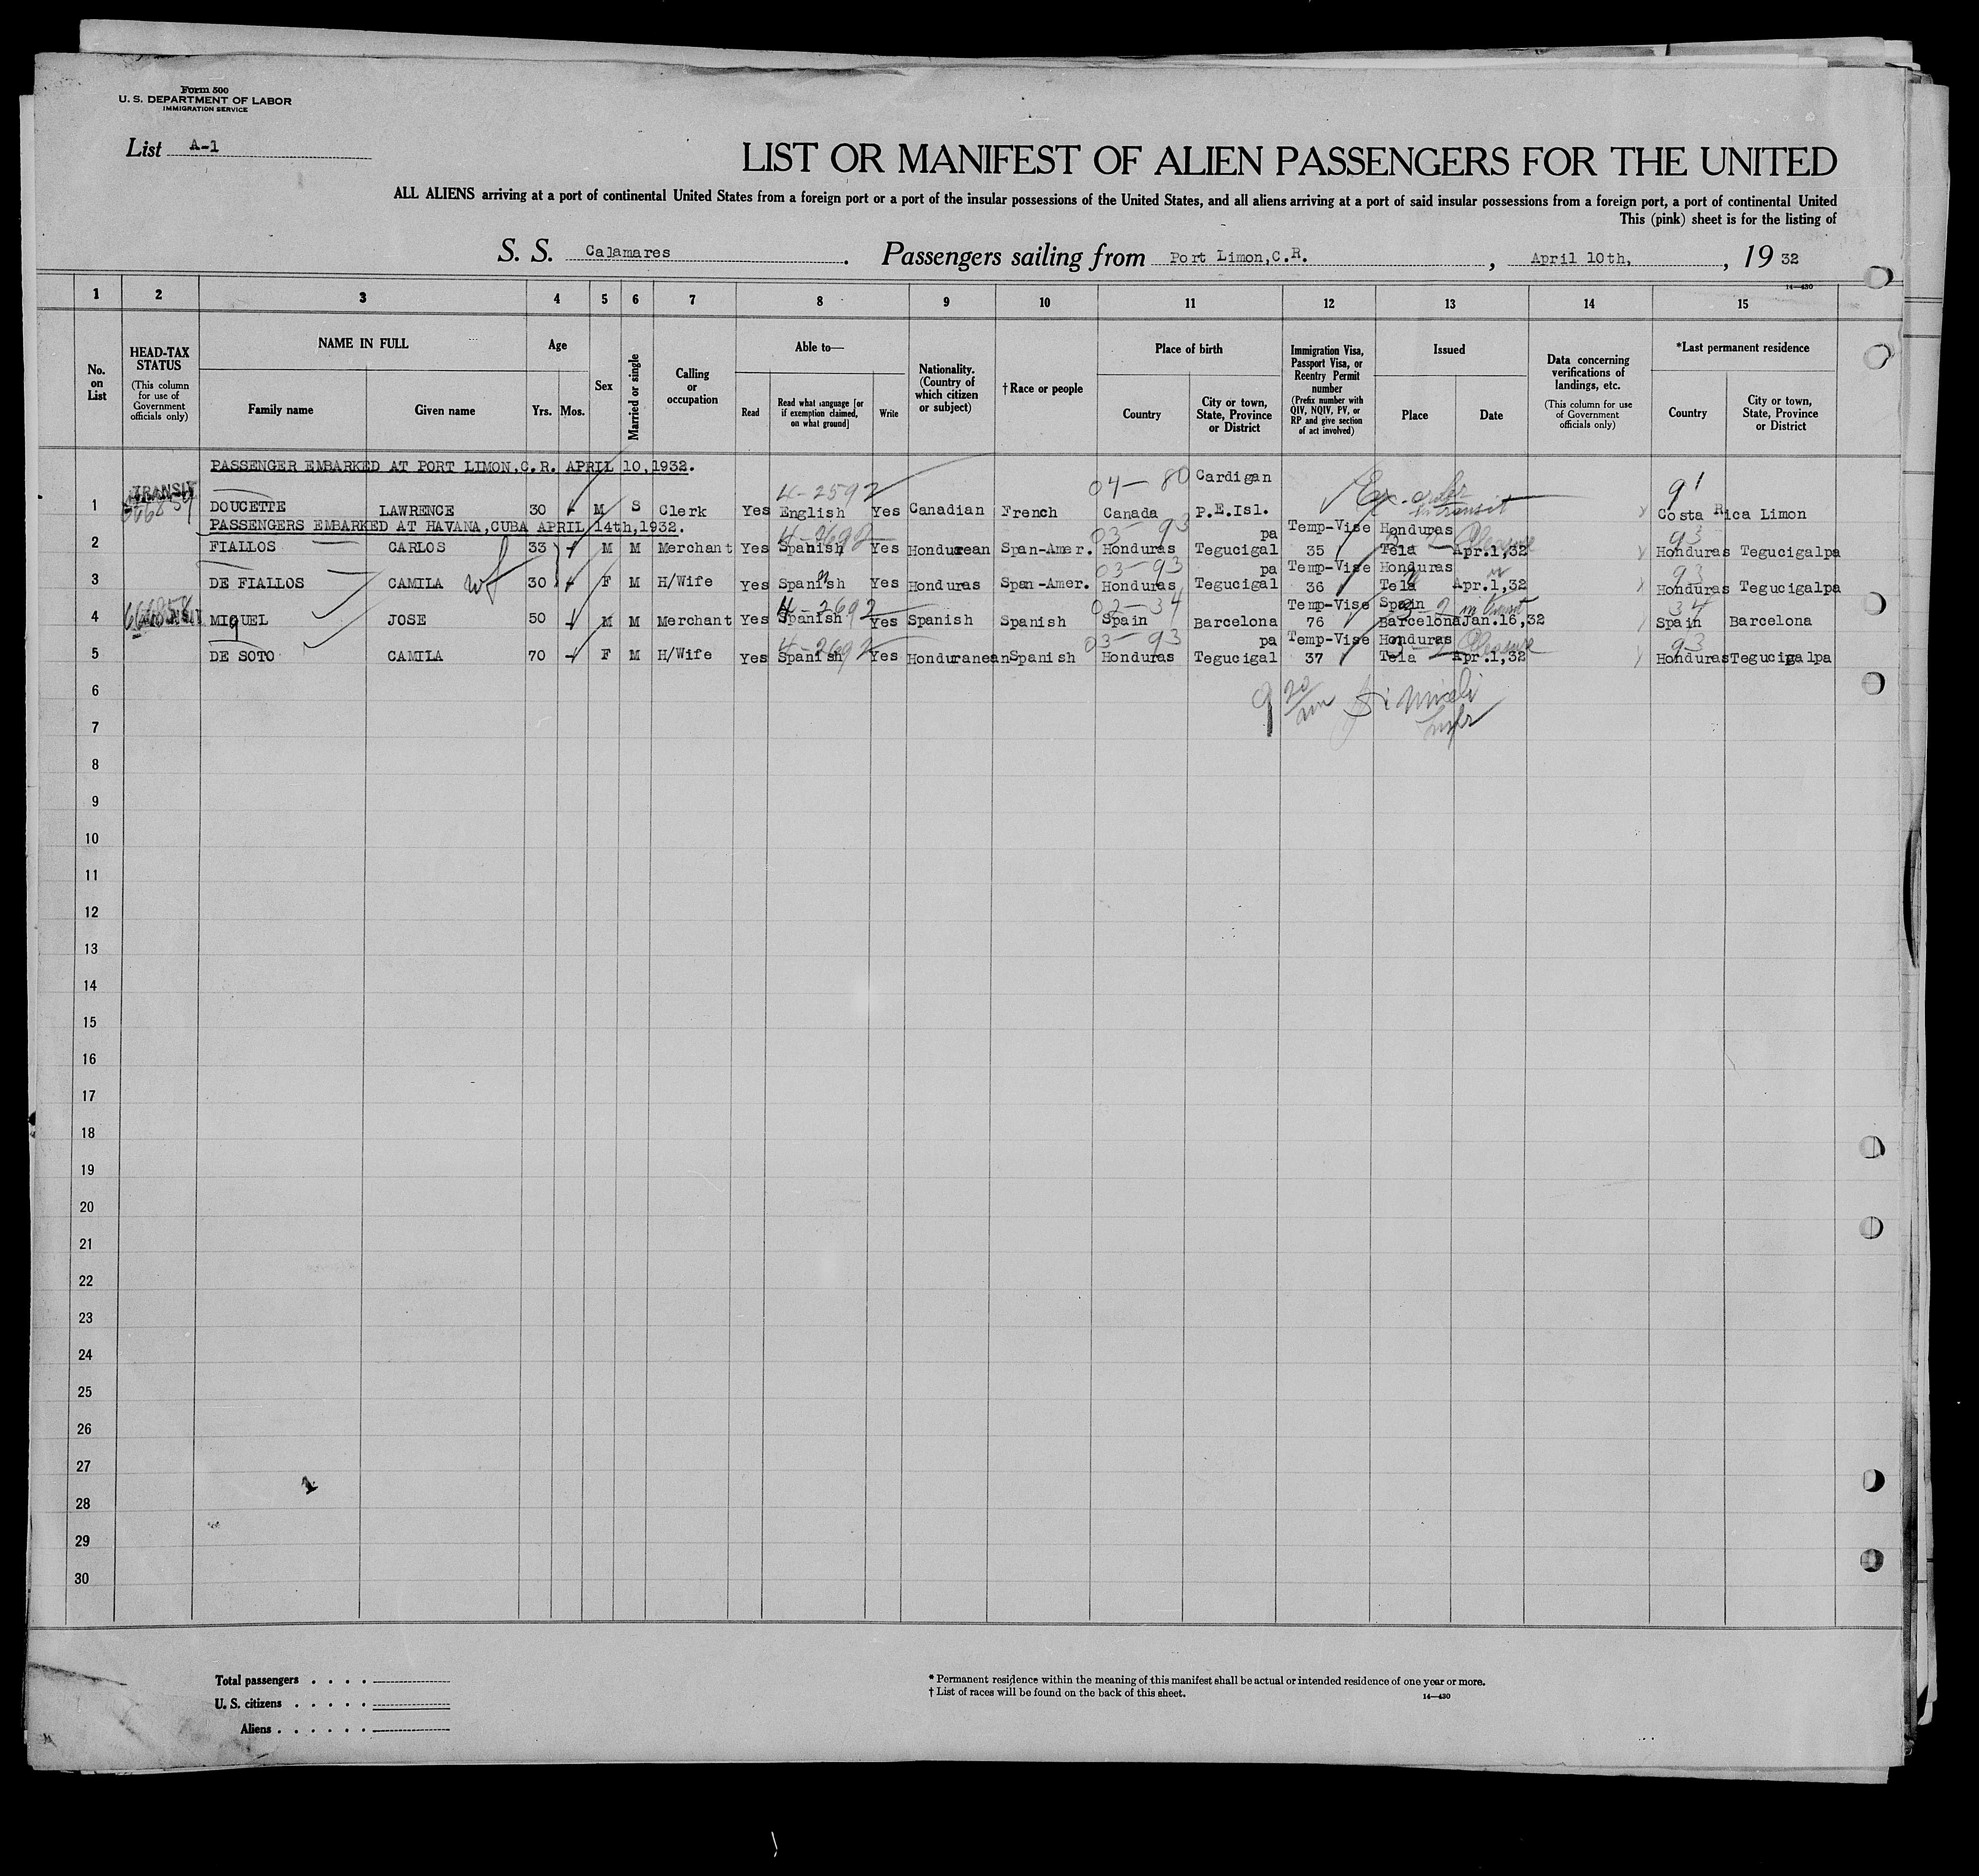 Form 500
U. S. DEPARTMENT OF LABOR
IMMIGRATION SERVICE
List A-1
LIST OR MANIFEST OF ALIEN PASSENGERS FOR THE UNITED
ALL ALIENS arriving at a port of continental United States from a foreign port or a port of the insular possessions of the United States, and all aliens arriving at a port of said insular possessions from a foreign port, a port of continental United
This (pink) sheet is for the listing of
S. S. Calamares. Passengers sailing from Port Limon,C.R., April 10th, , 19 32
14—430
1 2 3 4 5 6 7 8 9 10 11 12 13 14 15
No. on List
HEAD-TAX STATUS
(This column for use of Government officials only)
NAME IN FULL
Family name Given name
Age
Yrs. Mos.
Sex
Married or single
Calling or occupation
Able to—
Read Read what language [or if exemption claimed, on what ground] Write
Nationality. (Country of which citizen or subject)
†Race or people
Place of birth
Country City or town, State, Province or District
Immigration Visa, Passport Visa, or Reentry Permit number
(Prefix number with QIV, NQIV, PV, or RP and give section of act involved)
Issued
Place Date
Data concerning verifications of landings, etc.
(This column for use of Government officials only)
*Last permanent residence
Country City or town, State, Province or District
PASSENGER EMBARKED AT PORT LIMON,C.R. APRIL 10,1932.
TRANSIT 4-2592 04-80 Cardigan 91
1 DOUCETTE LAWRENCE 30 M S Clerk Yes English Yes Canadian French Canada P.E.Isl. in transit Costa Rica Limon
PASSENGERS EMBARKED AT HAVANA,CUBA APRIL 14th,1932.
4-2692 03-93 pa Temp-Vise Honduras 93
2 FIALLOS CARLOS 33 M M Merchant Yes Spanish Yes Hondurean Span-Amer. Honduras Tegucigal 35 Tela Apr.1,32 Honduras Tegucigalpa
03-93 pa Temp-Vise Honduras 93
3 DE FIALLOS CAMILA wf 30 F M H/Wife Yes Spanish Yes Honduras Span-Amer. Honduras Tegucigal 36 Tela Apr.1,32 Honduras Tegucigalpa
4-2692 02-34 Temp-Vise Spain 34
4 MIQUEL JOSE 50 M M Merchant Yes Spanish Yes Spanish Spanish Spain Barcelona 76 Barcelona Jan.16,32 Spain Barcelona
4-2692 03-93 pa Temp-Vise Honduras 93
5 DE SOTO CAMILA 70 F M H/Wife Yes Spanish Yes Honduranean Spanish Honduras Tegucigal 37 Tela Apr.1,32 Honduras Tegucigalpa
6
7
8
9
10
11
12
13
14
15
16
17
18
19
20
21
22
23
24
25
26
27
28
29
30
Total passengers . . . .
U. S. citizens . . . . .
Aliens . . . . . .
* Permanent residence within the meaning of this manifest shall be actual or intended residence of one year or more.
† List of races will be found on the back of this sheet.
14—430